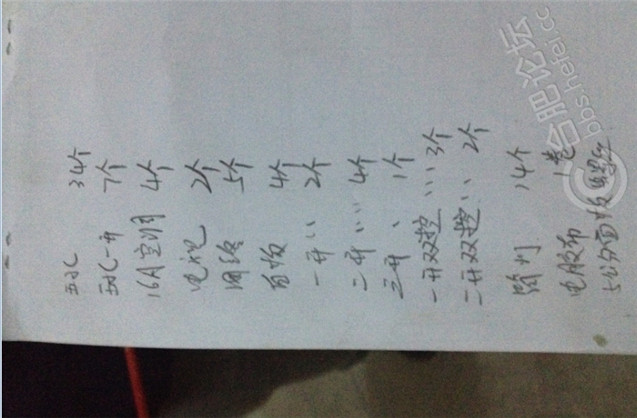 五孔 34个
五孔一开 7个
16A空调 4个
电视 2个
网络 5个
白板 4个
一开 2个
二开 4个
三开 1个
一开双控 3个
二开双控 2个
筒灯 14个
电胶布 1卷
合肥论坛
bbs.hefei.cc